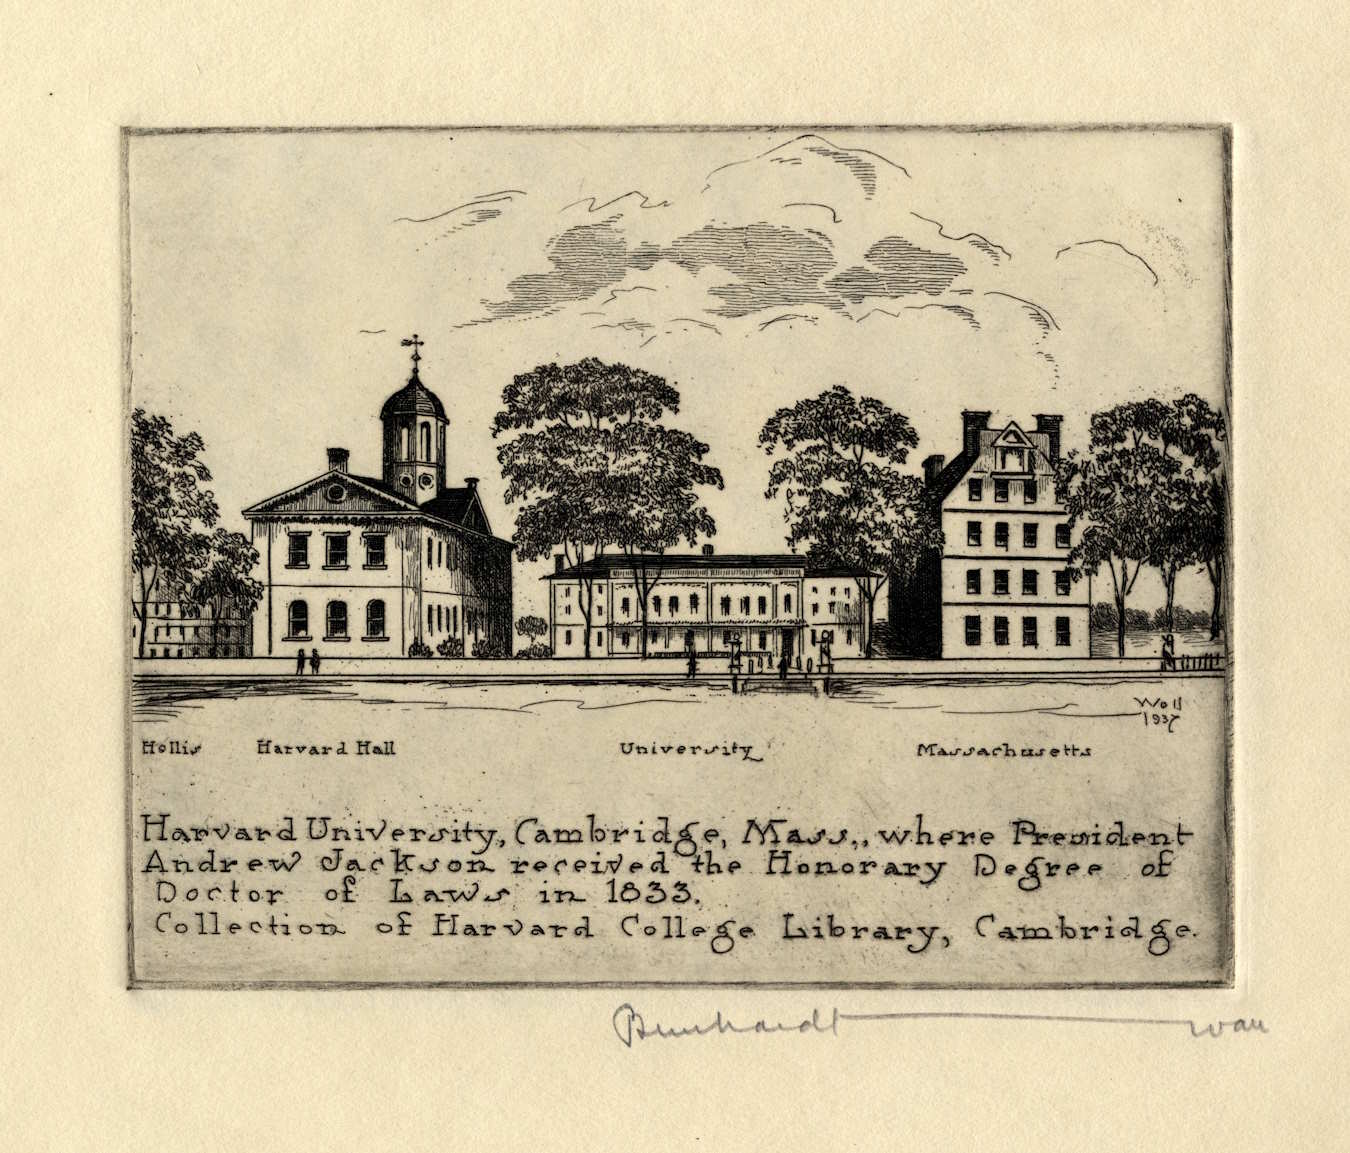 Wall
1937
Hollis Harvard Hall University Massachusetts
Harvard University, Cambridge, Mass., where President
Andrew Jackson received the Honorary Degree of
Doctor of Laws in 1833.
Collection of Harvard College Library, Cambridge.
Bernhardt Wall